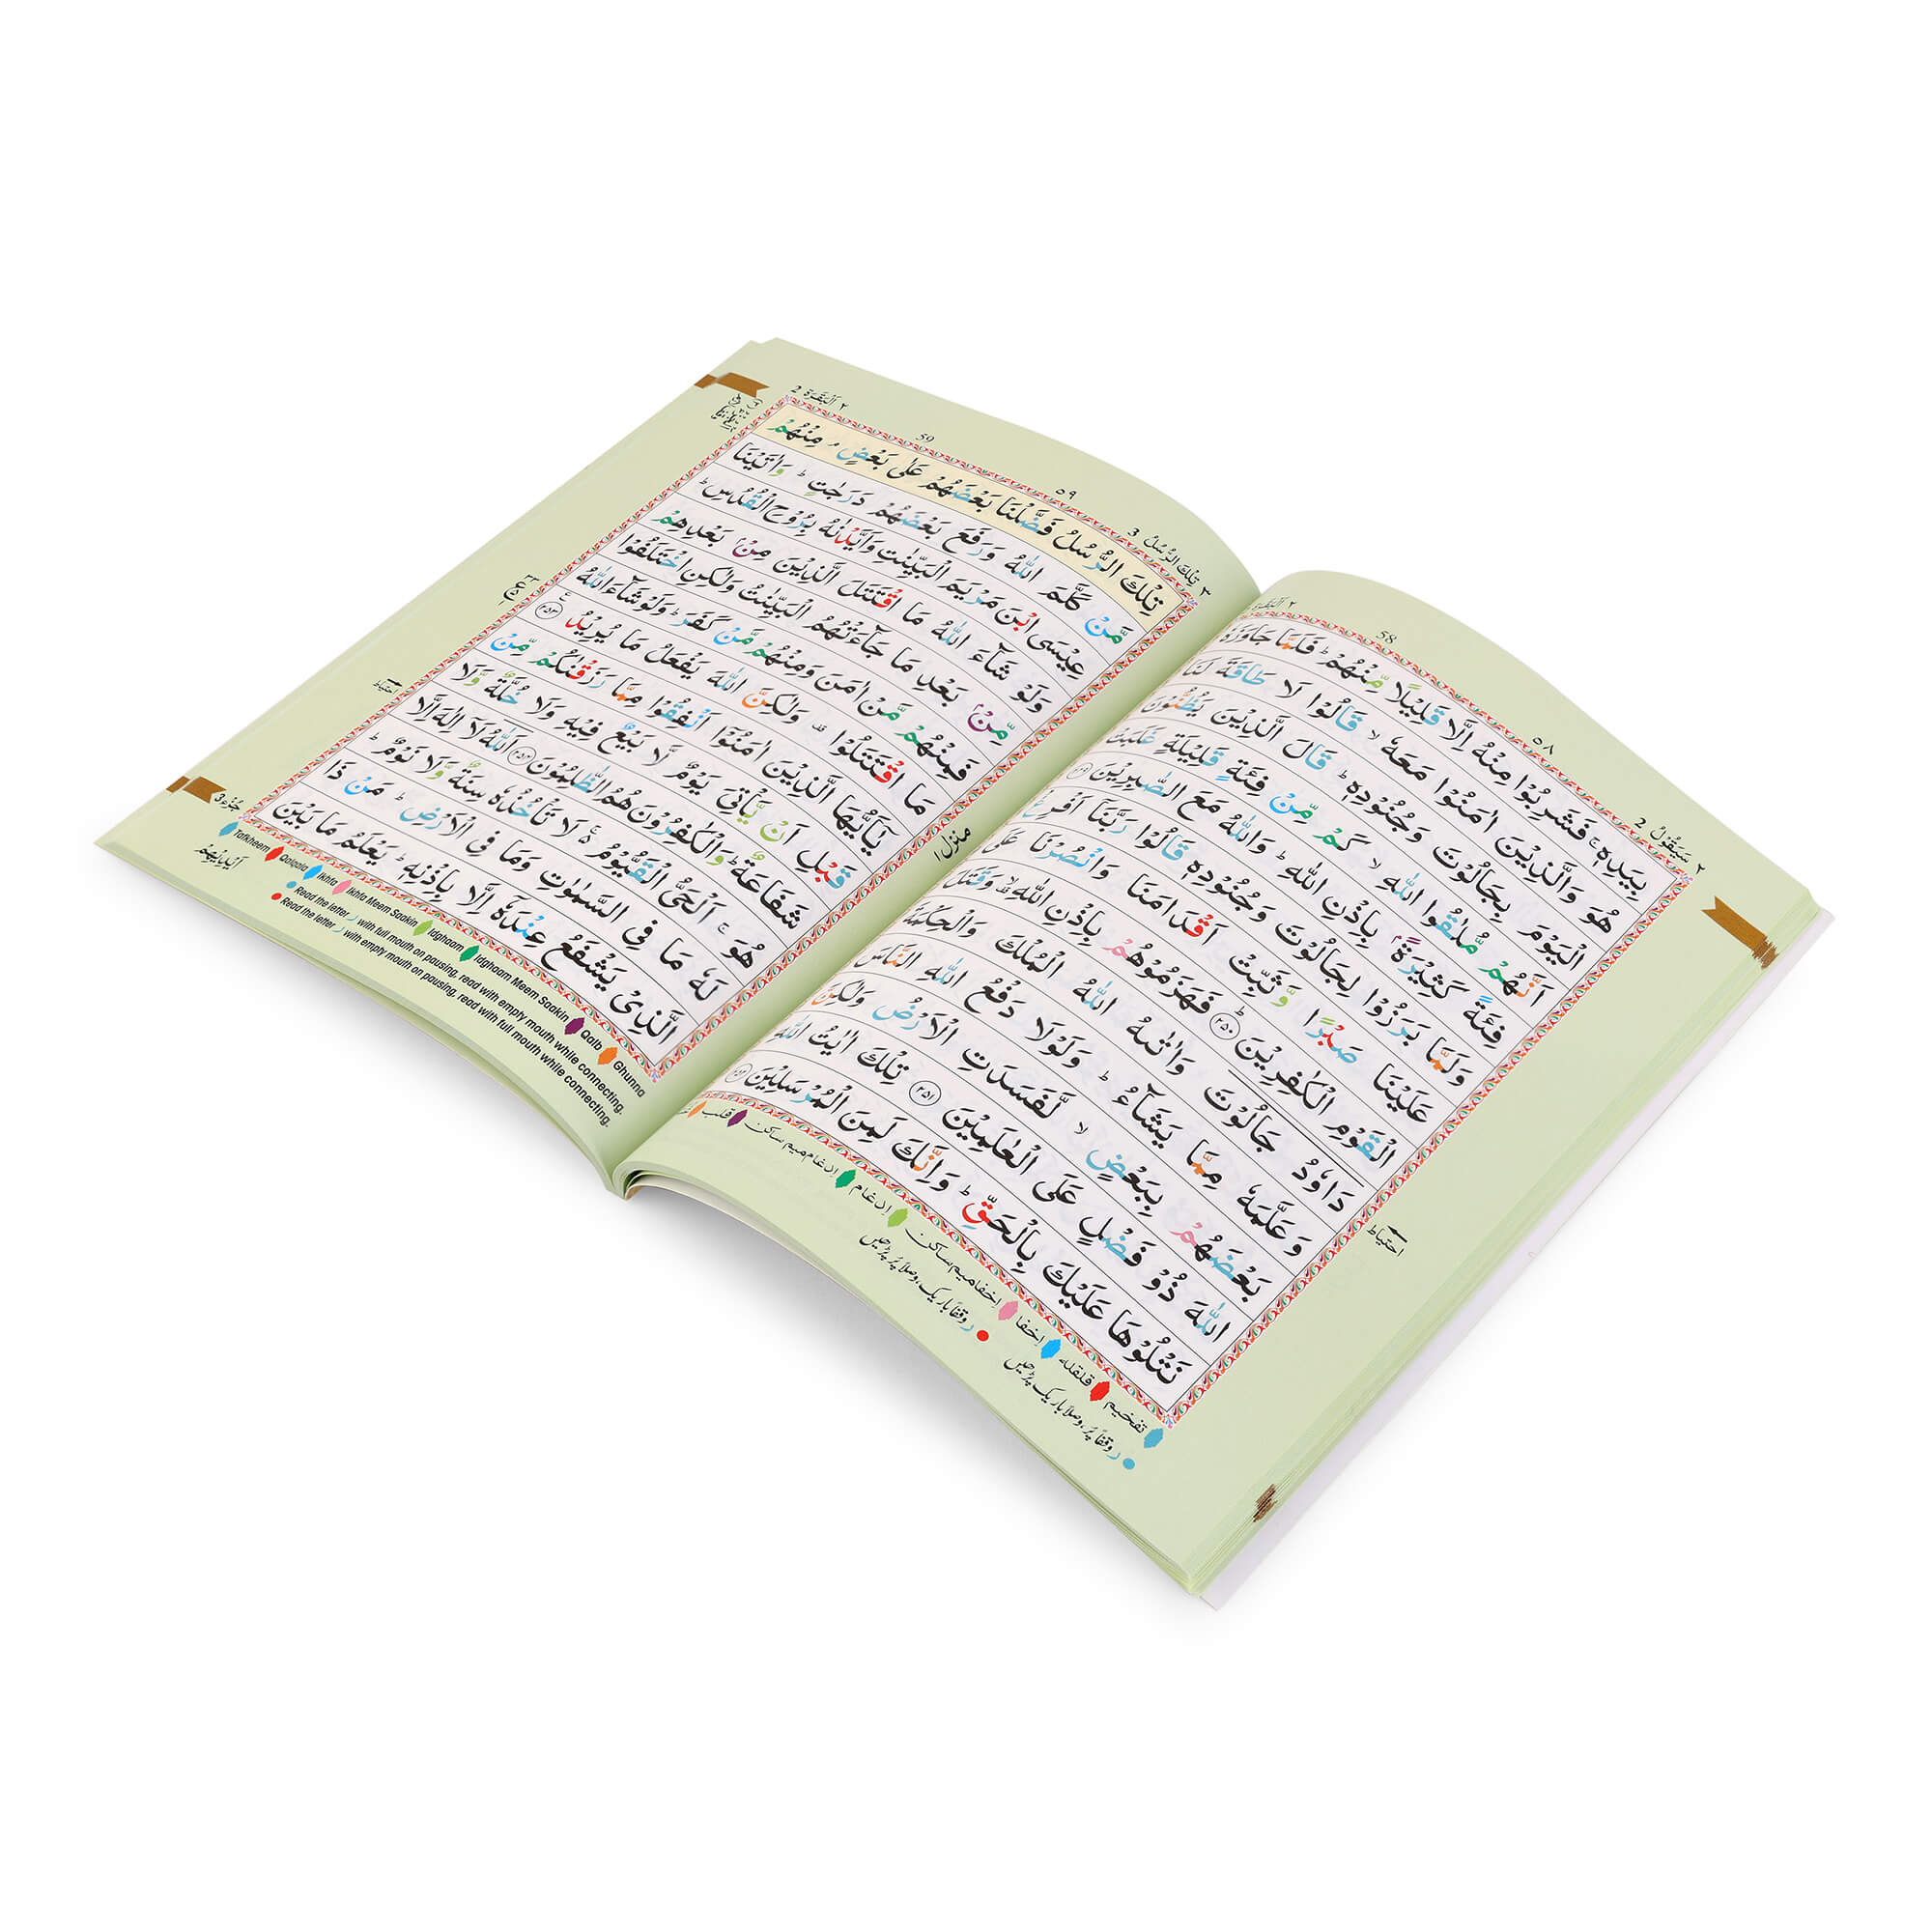 ٢ سَيَقُوْلُ 2
٥٨
58
٢ اَلْبَقَرَة
بِيَدِهٖ ۚ فَشَرِبُوْا مِنْهُ اِلَّا قَلِيْلًا مِّنْهُمْ ؕ فَلَمَّا جَاوَزَهٗ
هُوَ وَالَّذِيْنَ اٰمَنُوْا مَعَهٗ ۙ قَالُوْا لَا طَاقَةَ لَنَا
الْيَوْمَ بِجَالُوْتَ وَجُنُوْدِهٖ ؕ قَالَ الَّذِيْنَ يَظُنُّوْنَ
اَنَّهُمْ مُّلٰقُوا اللّٰهِ ۙ كَمْ مِّنْ فِئَةٍ قَلِيْلَةٍ غَلَبَتْ
فِئَةً كَثِيْرَةًۢ بِاِذْنِ اللّٰهِ ؕ وَاللّٰهُ مَعَ الصّٰبِرِيْنَ ٢٤٩
وَلَمَّا بَرَزُوْا لِجَالُوْتَ وَجُنُوْدِهٖ قَالُوْا رَبَّنَا اَفْرِغْ
عَلَيْنَا صَبْرًا وَّثَبِّتْ اَقْدَامَنَا وَانْصُرْنَا عَلَى
الْقَوْمِ الْكٰفِرِيْنَ ؕ ٢٥٠ فَهَزَمُوْهُمْ بِاِذْنِ اللّٰهِ ۙ وَقَتَلَ
دَاوٗدُ جَالُوْتَ وَاٰتٰىهُ اللّٰهُ الْمُلْكَ وَالْحِكْمَةَ
وَعَلَّمَهٗ مِمَّا يَشَآءُ ؕ وَلَوْلَا دَفْعُ اللّٰهِ النَّاسَ
بَعْضَهُمْ بِبَعْضٍ ۙ لَّفَسَدَتِ الْاَرْضُ وَلٰكِنَّ
اللّٰهَ ذُوْ فَضْلٍ عَلَى الْعٰلَمِيْنَ ٢٥١ تِلْكَ اٰيٰتُ اللّٰهِ
نَتْلُوْهَا عَلَيْكَ بِالْحَقِّ ؕ وَاِنَّكَ لَمِنَ الْمُرْسَلِيْنَ ٢٥٢
احتیاط
تفخیم قلقلہ اِخفا اِخفا میم ساکن اِدغام اِدغام میم ساکن قلب
ر وقفاً پُر، وصلاً باریک پڑھیں ر وقفاً باریک، وصلاً پُر پڑھیں
٣ تِلْكَ الرُّسُلُ 3
٥٩
59
٢ اَلْبَقَرَة 2
تِلْكَ الرُّسُلُ فَضَّلْنَا بَعْضَهُمْ عَلٰى بَعْضٍ ۘ مِنْهُمْ
مَّنْ كَلَّمَ اللّٰهُ وَرَفَعَ بَعْضَهُمْ دَرَجٰتٍ ؕ وَاٰتَيْنَا
عِيْسَى ابْنَ مَرْيَمَ الْبَيِّنٰتِ وَاَيَّدْنٰهُ بِرُوْحِ الْقُدُسِ ؕ
وَلَوْ شَآءَ اللّٰهُ مَا اقْتَتَلَ الَّذِيْنَ مِنْۢ بَعْدِهِمْ
مِّنْۢ بَعْدِ مَا جَآءَتْهُمُ الْبَيِّنٰتُ وَلٰكِنِ اخْتَلَفُوْا
فَمِنْهُمْ مَّنْ اٰمَنَ وَمِنْهُمْ مَّنْ كَفَرَ ؕ وَلَوْ شَآءَ اللّٰهُ
مَا اقْتَتَلُوْا ۟ وَلٰكِنَّ اللّٰهَ يَفْعَلُ مَا يُرِيْدُ ٢٥٣
يٰۤاَيُّهَا الَّذِيْنَ اٰمَنُوْۤا اَنْفِقُوْا مِمَّا رَزَقْنٰكُمْ مِّنْ
قَبْلِ اَنْ يَّاْتِيَ يَوْمٌ لَّا بَيْعٌ فِيْهِ وَلَا خُلَّةٌ وَّلَا
شَفَاعَةٌ ؕ وَالْكٰفِرُوْنَ هُمُ الظّٰلِمُوْنَ ٢٥٤ اَللّٰهُ لَاۤ اِلٰهَ اِلَّا
هُوَ ۚ اَلْحَيُّ الْقَيُّوْمُ ۚ لَا تَاْخُذُهٗ سِنَةٌ وَّلَا نَوْمٌ ؕ
لَهٗ مَا فِي السَّمٰوٰتِ وَمَا فِي الْاَرْضِ ؕ مَنْ ذَا
الَّذِيْ يَشْفَعُ عِنْدَهٗۤ اِلَّا بِاِذْنِهٖ ؕ يَعْلَمُ مَا بَيْنَ
اَيْدِيْهِمْ
احتیاط
جُزْء 3
منزل ١
Tafkheem Qalqala Ikhfa Ikhfa Meem Saakin Idghaam Idghaam Meem Saakin Qalb Ghunna
Read the letter ر with full mouth on pausing, read with empty mouth while connecting.
Read the letter ر with empty mouth on pausing, read with full mouth while connecting.